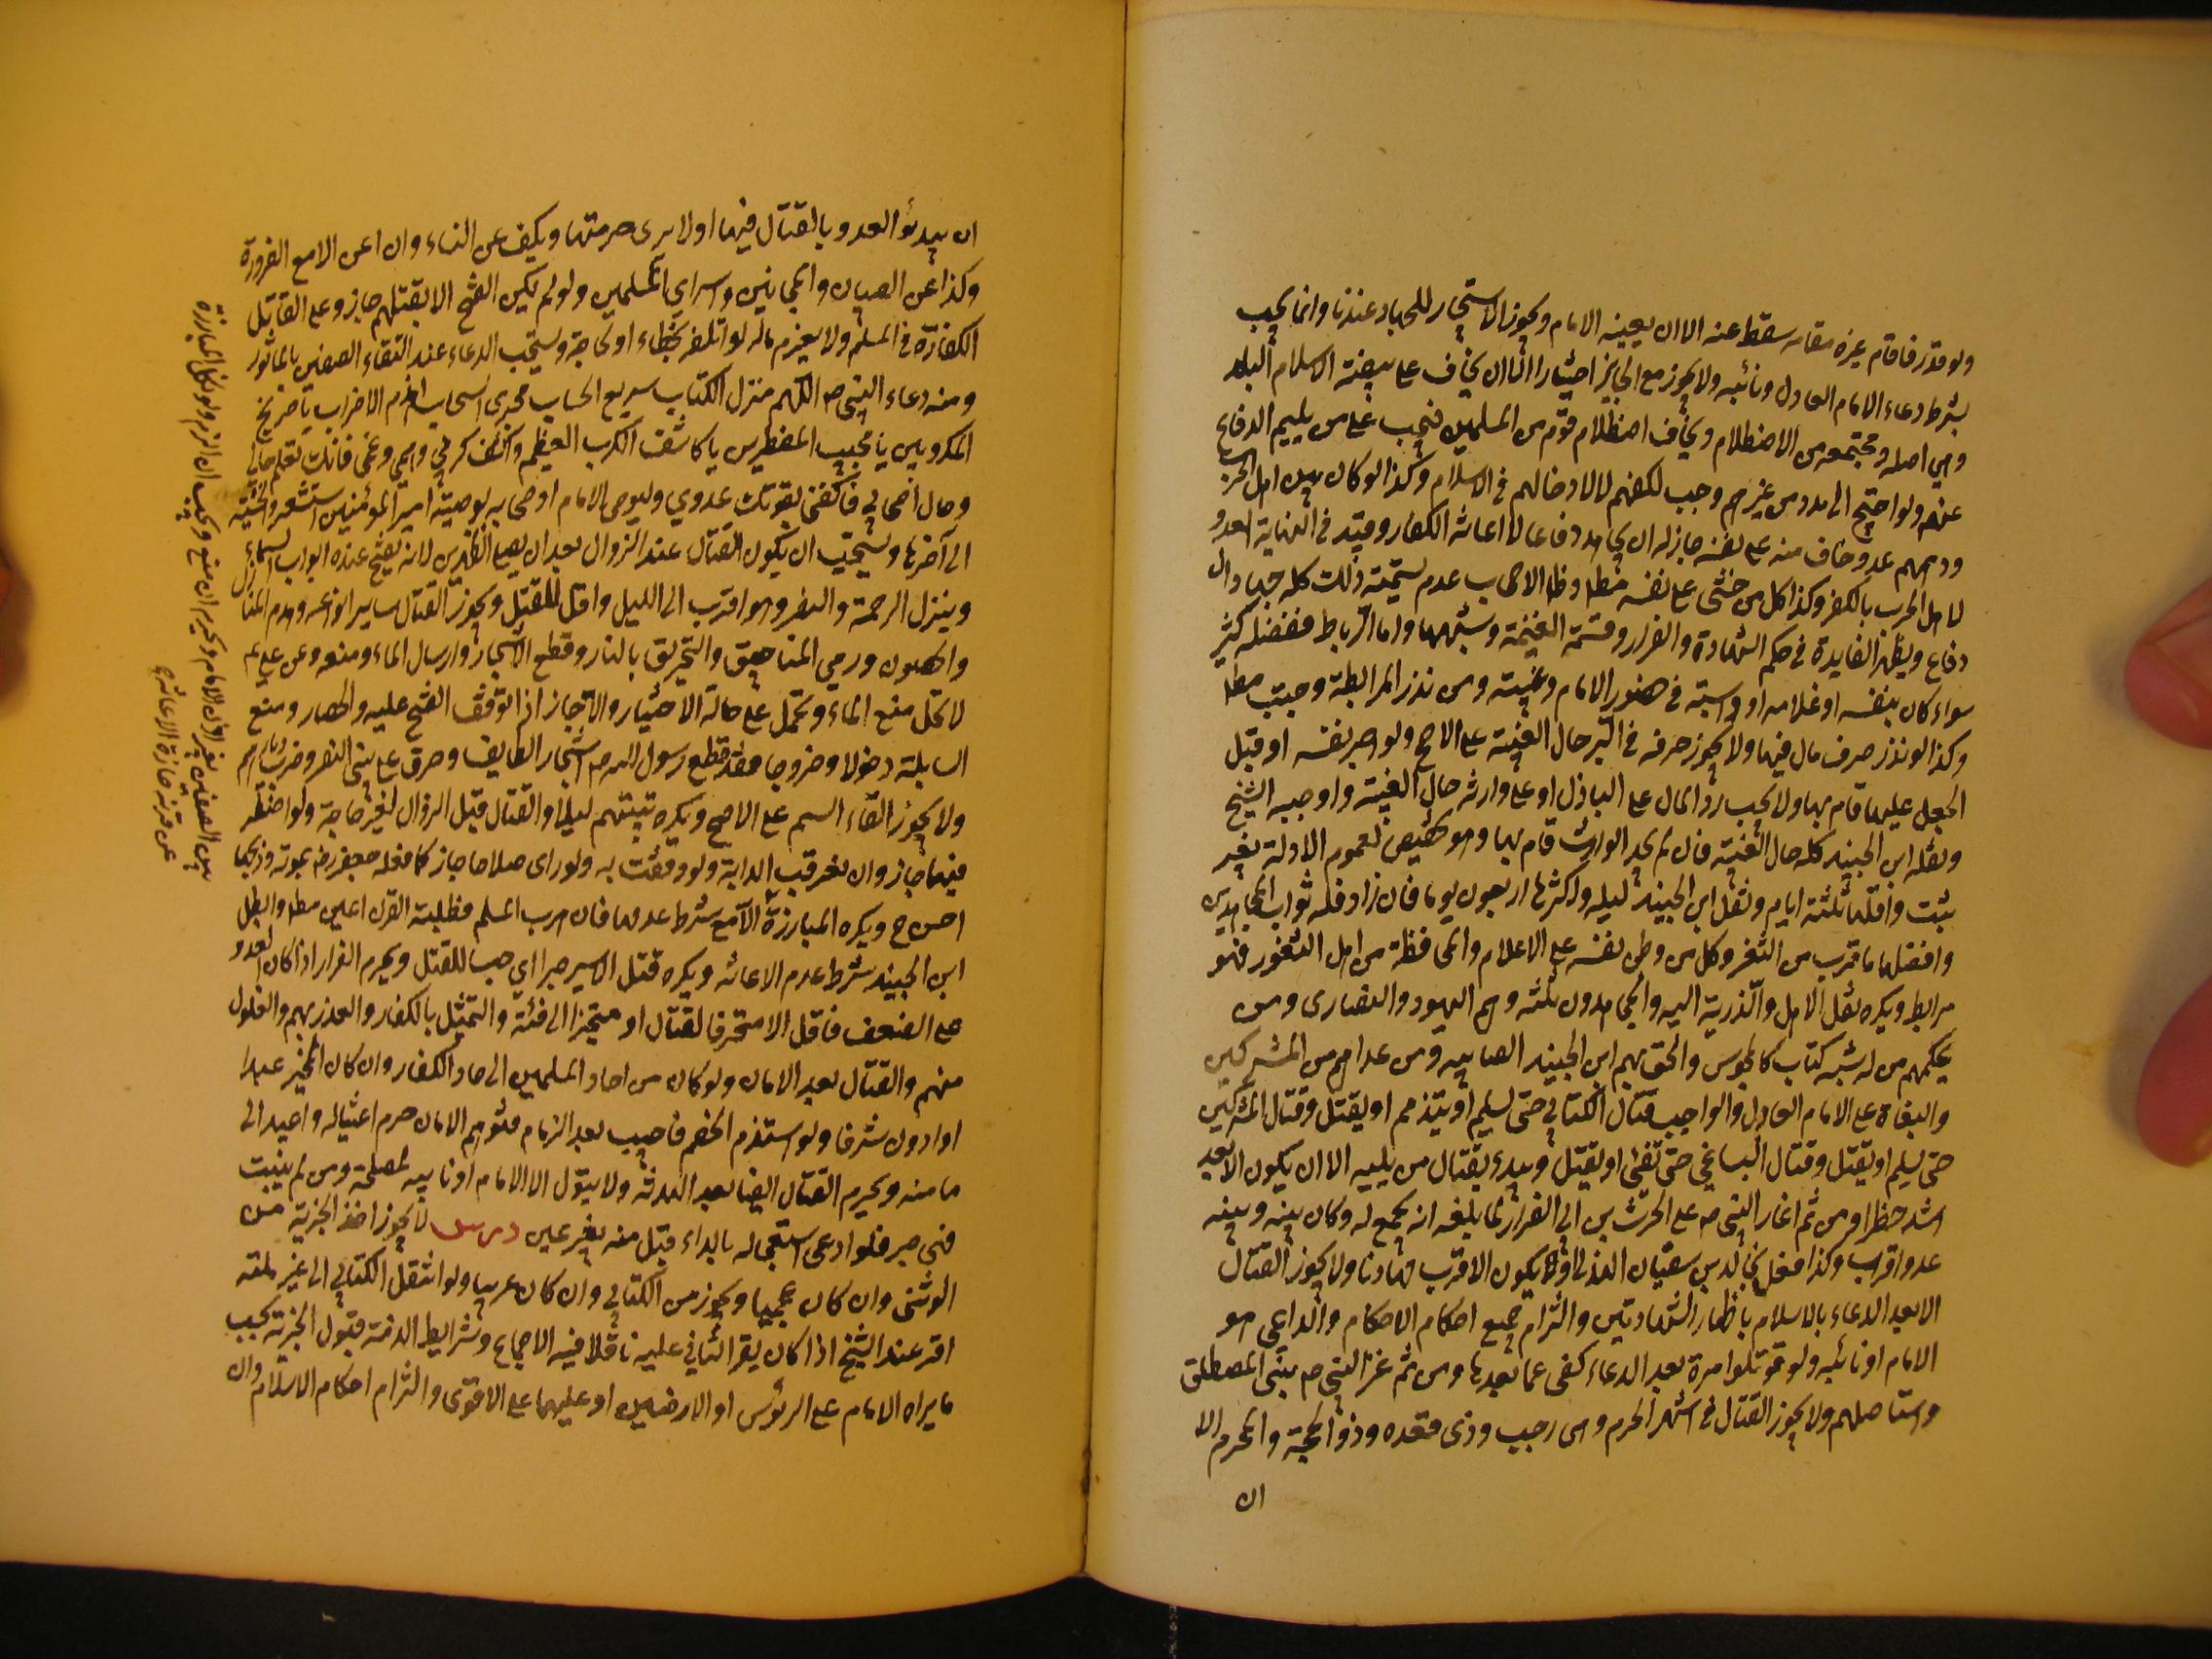 ولو قدر فاقام غيره مقامه سقط عنه الا ان يعينه الامام ويجوز الاستيجار للجهاد عندنا وانما يجب
بشرط دعاء الامام العادل او نائبه ولا يجوز مع الجاير اختيارا الا ان يخاف على بيضة الاسلام
وهي اصله ومجتمعه من الاصطلام او يخاف اصطلام قوم من المسلمين فيجب على من يليهم الدفاع
عنهم ولو احتيج الى مدد من غيرهم وجب لكفهم لا لادخالهم في الاسلام وكذا لو كان بين اهل الحرب
ودهمهم عدو خاف منه على نفسه جاز له ان يجاهد دفاعا لا اعانة الكفار وقيد في النهاية العدو
لاهل الحرب بالكفر وكذا كل من خشى على نفسه مطلقا وظا الاصحاب عدم تسمية ذلك كله جهادا بل
دفاع ويظهر الفايدة في حكم الشهادة والفرار وقسمة الغنيمة وشبهها واما الرباط ففضله كثير
سواء كان بنفسه او غلامه او دابته في حضور الامام وغيبته ومن نذر المرابطة وجبت مطلقا
وكذا لو نذر صرف مال فيها ولا يجوز صرفه في البر حال الغيبة على الاصح ولو اجر نفسه او قبل
الجعل عليها قام بها ولا يجب رد المال على الباذل او على وارثه حال الغيبة واوجبه الشيخ
ونقله ابن الجنيد كله حال الغيبة فان لم يجد الوارث قام بها وهو تخصيص لعموم الادلة بغير
ثبت واقلها ثلثة ايام ونقل ابن الجنيد ليلة واكثرها اربعون يوما فان زاد فله ثواب المجاهدين
وافضلها ما قرب من الثغر وكل من وطن نفسه على الاعلام والمحافظة من اهل الثغور فهو
مرابط ويكره نقل الاهل والذرية اليه والمجاهدون ثلثة وهم اليهود والنصارى ومن
بحكمهم من له شبه كتاب كالمجوس والحق بهم ابن الجنيد الصابيه ومن عداهم من المشركين
والبغاة على الامام العادل والواجب قتال الكتابي حتى يسلم او يتذمم او يقتل وقتال المشركين
حتى يسلم او يقتل وقتال الباغي حتى تفئ او يقتل ويبدء بقتال من يليه الا ان يكون الابعد
اشد خطرا ومن ثم اغار النبي ص على الحرث بن ابي الضرار لما بلغه انه يجمع له وكان بينه وبينه
عدو اقرب وكذا فعل بخالد بن سفيان الهذلي او يكون الاقرب مهادنا ولا يجوز القتال
الا بعد الدعاء بالاسلام باظهار الشهادتين والتزام جميع احكام الاحكام والداعي هو
الامام او نائبه ولو قوتلوا مرة بعد الدعاء كفى عما بعدها ومن ثم غزا النبي ص بني المصطلق
واستاصلهم ولا يجوز القتال في اشهر الحرم وهى رجب وذى قعده وذو الحجة والمحرم الا
ان
ان يبدئو العدو بالقتال فيها او لا يرى حرمتها ويكف عن النساء وان اعن الا مع الضرورة
وكذا عن الصبيان والمجانين واسراى المسلمين ولو لم يكن الفتح الا بقتلهم جاز وعلى القاتل
الكفارة في المسلم ولا يغرم ماله لو اتلفه بخطاء او لحاجة ويستحب الدعاء عند التقاء الصفين بالماثور
ومنه دعاء النبى ص اللهم منزل الكتاب سريع الحساب مجرى السحاب اهزم الاحزاب يا صريخ
المكروبين يا مجيب المضطرين يا كاشف الكرب العظيم واكشف كربي وهمي وغمى فانك تعلم حالي
وحال اصحابي فاكفني بقوتك عدوي وليوص الامام اوصى به بوصية امير المؤمنين استشعروا الخشية
الى آخرها ويستحب ان يكون القتال عند الزوال بعد ان يصلى الظهرين لانه يفتح عنده ابواب السماء
وينزل الرحمة والنصر وهو اقرب الى الليل واقل للقتل ويجوز القتال بساير انواعه وهدم المنازل
والحصون ورمي المناجيق والتحريق بالنار وقطع الاشجار وارسال الماء ومنعه وعن علي ع
لا تحل منع الماء وتحمل على حالة الاختيار والا جاز اذا توقف الفتح عليه والحصار ومنع
السابلة دخولا وخروجا فقد قطع رسول الله ص اشجار الطايف وحرق على بنى النضر وخرب ديارهم
ولا يجوز القاء السم على الاصح ويكره تبييتهم ليلا والقتال قبل الزوال لغير حاجة ولو اضطر
فيهما جاز وان يعرقب الدابة ولو وقفت به ولو راى صلاحا جاز كما فعله جعفر رض بموته وذبحها
احسن ح ويكره المبارزة الا مع شرط عدمها فان هرب المسلم فطلبه القرن اعين مطلقا وابطل
ابن الجنيد شرط عدم الاعانه ويكره قتل الاسير صبرا اى حبسا للقتل ويحرم الفرار اذا كان العدو
على الضعف فاقل الا متحرفا لقتال او متحيزا الى فئة والتمثيل بالكفار والغدر بهم والغلول
منهم والقتال بعد الامان ولو كان من احاد المسلمين الى حاد الكفار وان كان المجير عبدا
او ادون شرفا ولو استذم الخصم فاجيب بعد الزمام فتوهم الامان حرم اغتياله واعيد الى
مامنه ويحرم القتال ايضا بعد الهدنة ولا يتول الا الامام او نايبه لمصلحة ومن لم ينبت
فهى صبر فلو ادعى استعجاله بالدواء قبل منه بغير عين درس لا يجوز اخذ الجزية من
الوثنى وان كان عجميا ويجوز من الكتابي وان كان عربيا ولو انتقل الكتابي الى غير ملته
اقر عند الشيخ اذا كان يقر الثاني عليه ناقلا فيه الاجماع وشرايط الذمة قبول الجزية بحسب
ما يراه الامام على الرئوس او الارضين او عليهما على الاقوى والتزام احكام الاسلام وان
بين الصفين بغير اذن الامام ويحرم ان منع ويجب ان الزم